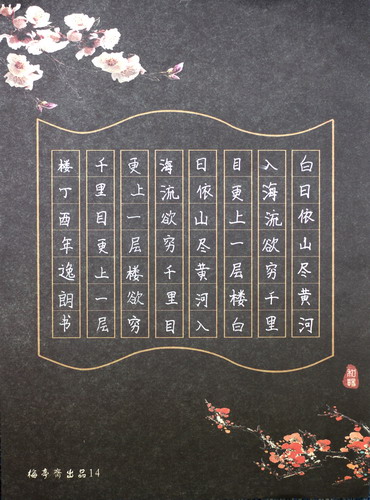 白日依山尽黄河
入海流欲穷千里
目更上一层楼白
日依山尽黄河入
海流欲穷千里目
更上一层楼欲穷
千里目更上一层
楼丁酉年逸朗书
梅亭斋出品14